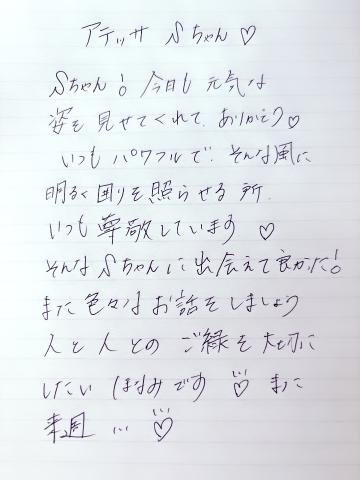 アテッサ Sちゃん ♡
Sちゃん! 今日も 元気な
姿を 見せてくれて、ありがとう♡
いつも パワフルで、そんな風に
明るく 周りを 照らせる 所、
いつも 尊敬しています ♡
そんな Sちゃんに 出会えて 良かった!
また 色々な お話を しましょう
人と 人との ご縁を 大切に
したい ほなみです ♡ また
来週 … ♡